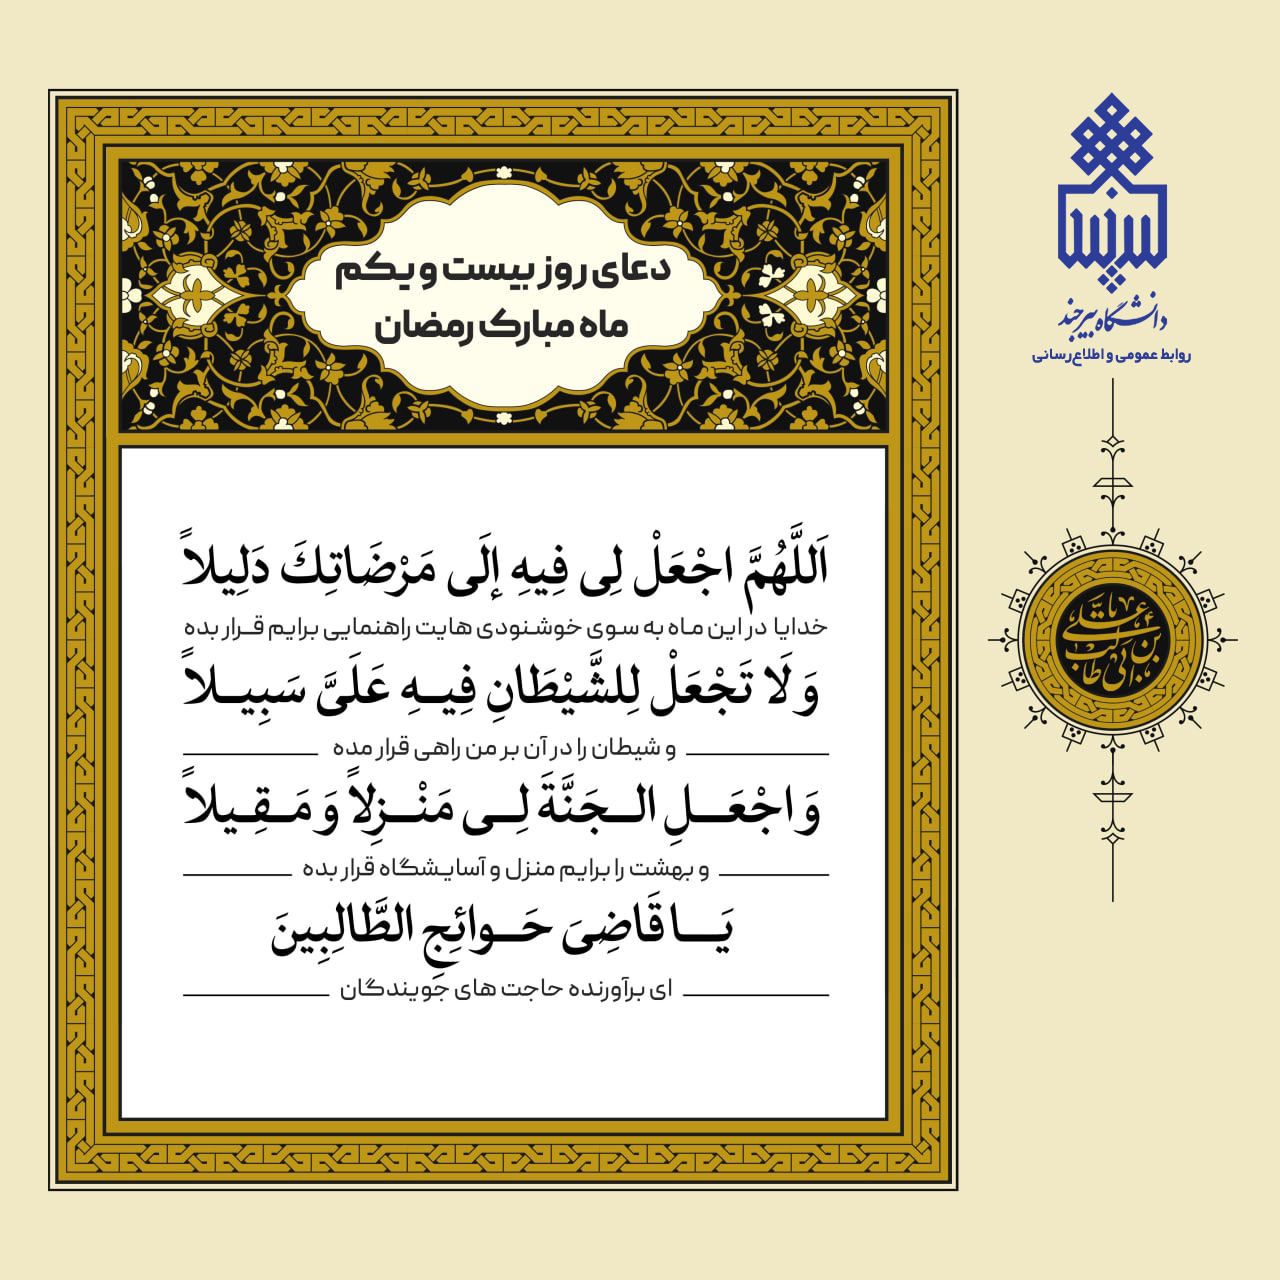 دعای روز بیست و یکم
ماه مبارک رمضان
اَللَّهُمَّ اجْعَلْ لِی فِیهِ إِلَی مَرْضَاتِكَ دَلِیلاً
خدایا در این ماه به سوی خوشنودی هایت راهنمایی برایم قرار بده
وَ لَا تَجْعَلْ لِلشَّیْطَانِ فِیهِ عَلَیَّ سَبِیلاً
و شیطان را در آن بر من راهی قرار مده
وَ اجْعَلِ الجَنَّةَ لِی مَنْزِلاً وَ مَقِیلاً
و بهشت را برایم منزل و آسایشگاه قرار بده
یَا قَاضِیَ حَوائِجِ الطَّالِبِینَ
ای برآورنده حاجت های جویندگان
بیرجند
دانشگاه بیرجند
روابط عمومی و اطلاع‌رسانی
یا علی بن ابی طالب